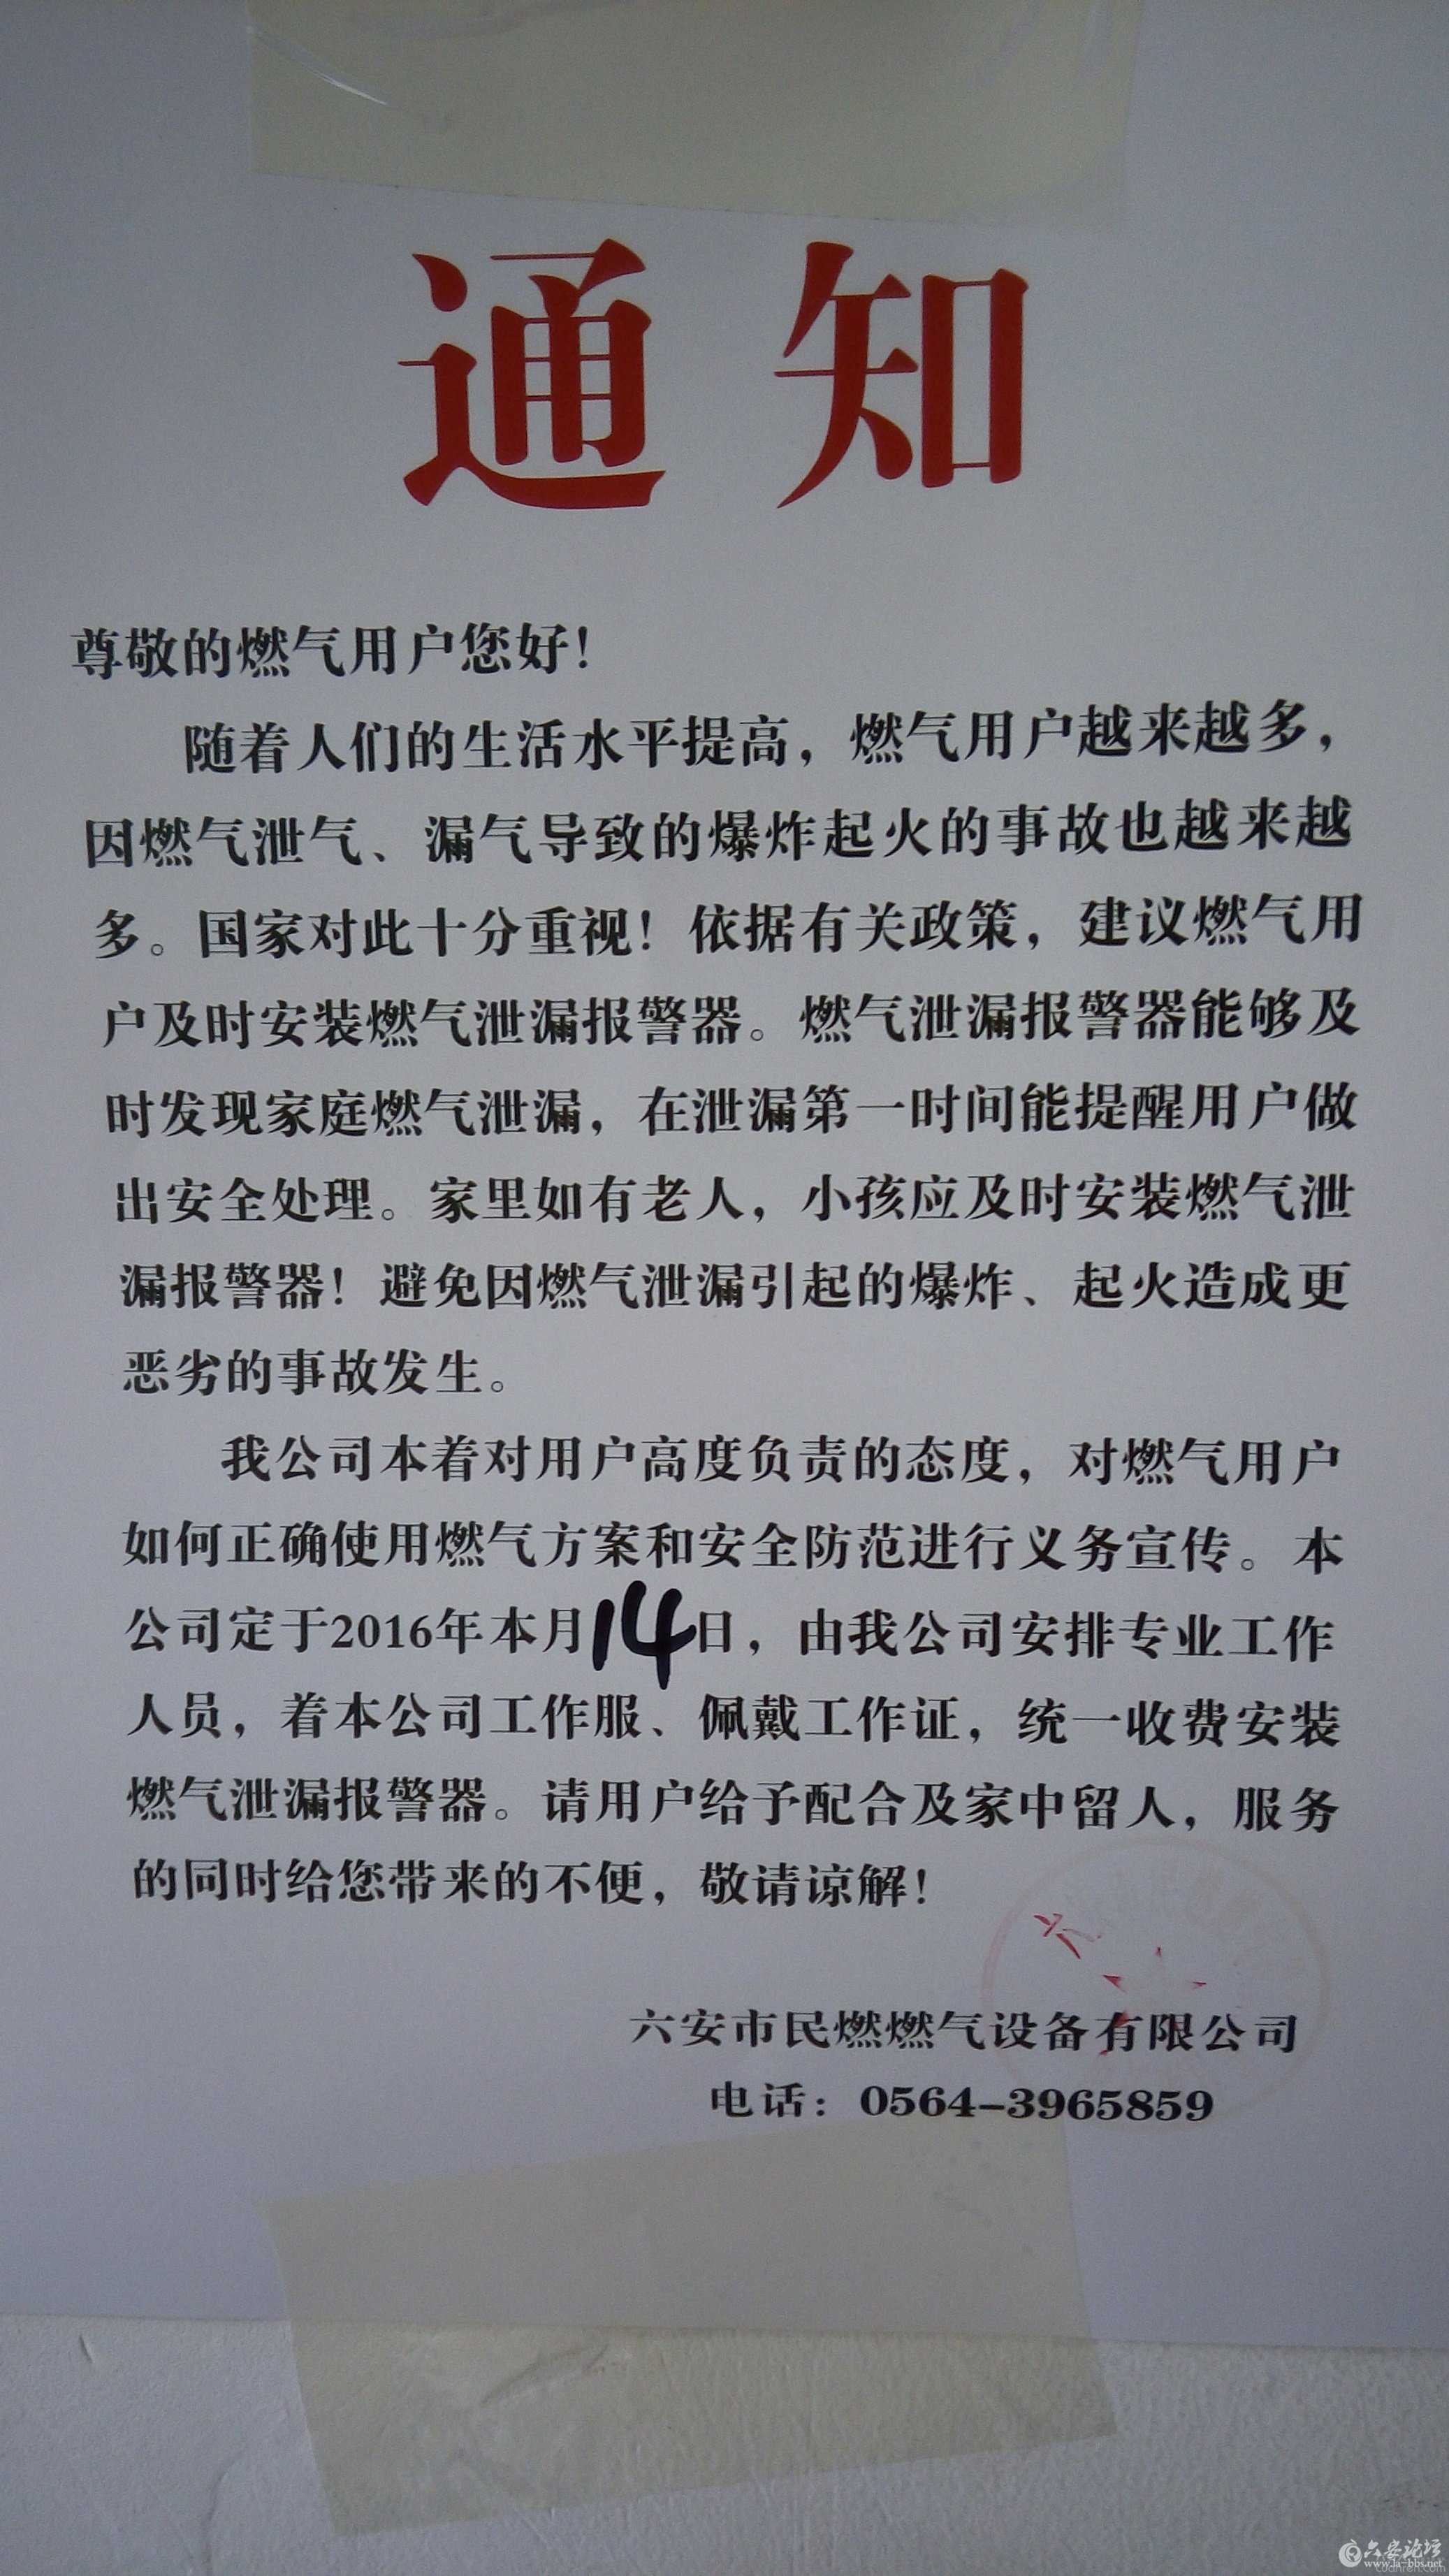 通知
尊敬的燃气用户您好！
随着人们的生活水平提高，燃气用户越来越多，
因燃气泄气、漏气导致的爆炸起火的事故也越来越
多。国家对此十分重视！依据有关政策，建议燃气用
户及时安装燃气泄漏报警器。燃气泄漏报警器能够及
时发现家庭燃气泄漏，在泄漏第一时间能提醒用户做
出安全处理。家里如有老人，小孩应及时安装燃气泄
漏报警器！避免因燃气泄漏引起的爆炸、起火造成更
恶劣的事故发生。
我公司本着对用户高度负责的态度，对燃气用户
如何正确使用燃气方案和安全防范进行义务宣传。本
公司定于2016年本月14日，由我公司安排专业工作
人员，着本公司工作服、佩戴工作证，统一收费安装
燃气泄漏报警器。请用户给予配合及家中留人，服务
的同时给您带来的不便，敬请谅解！
六安市民燃燃气设备有限公司
电话：0564-3965859
六安论坛
www.la-bbs.net